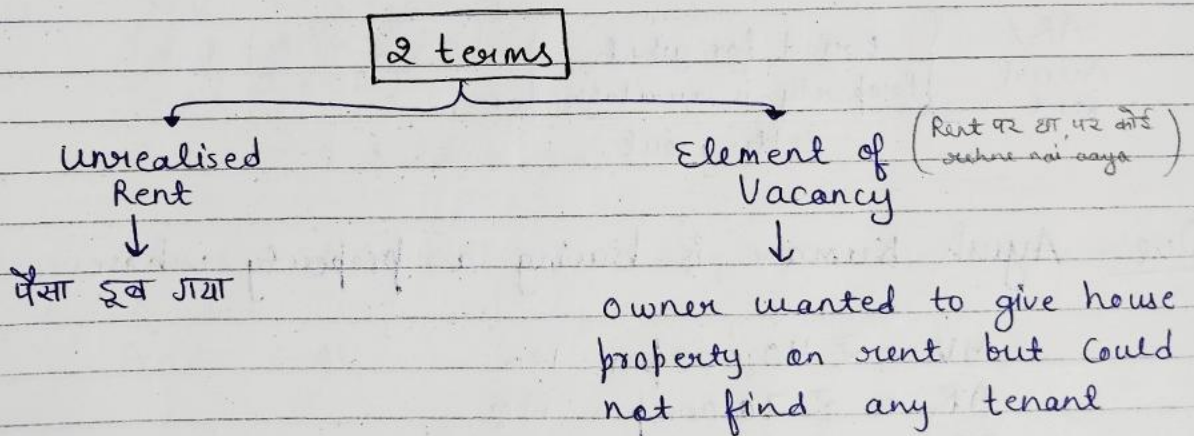 2 terms
Unrealised
Rent
पैसा डूब गया
Element of
Vacancy
(Rent पर था, पर कोई
rehne nai aaya)
Owner wanted to give house
property on rent but could
not find any tenant